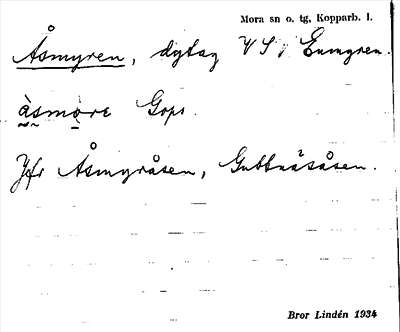 Mora sn o. tg, Kopparb. l.
Åsmyren, dytag VS, Enmyren.
åsmọre Gopr.
Jfr Åsmyråsen, Gubbnäsåsen.
Bror Lindén 1934